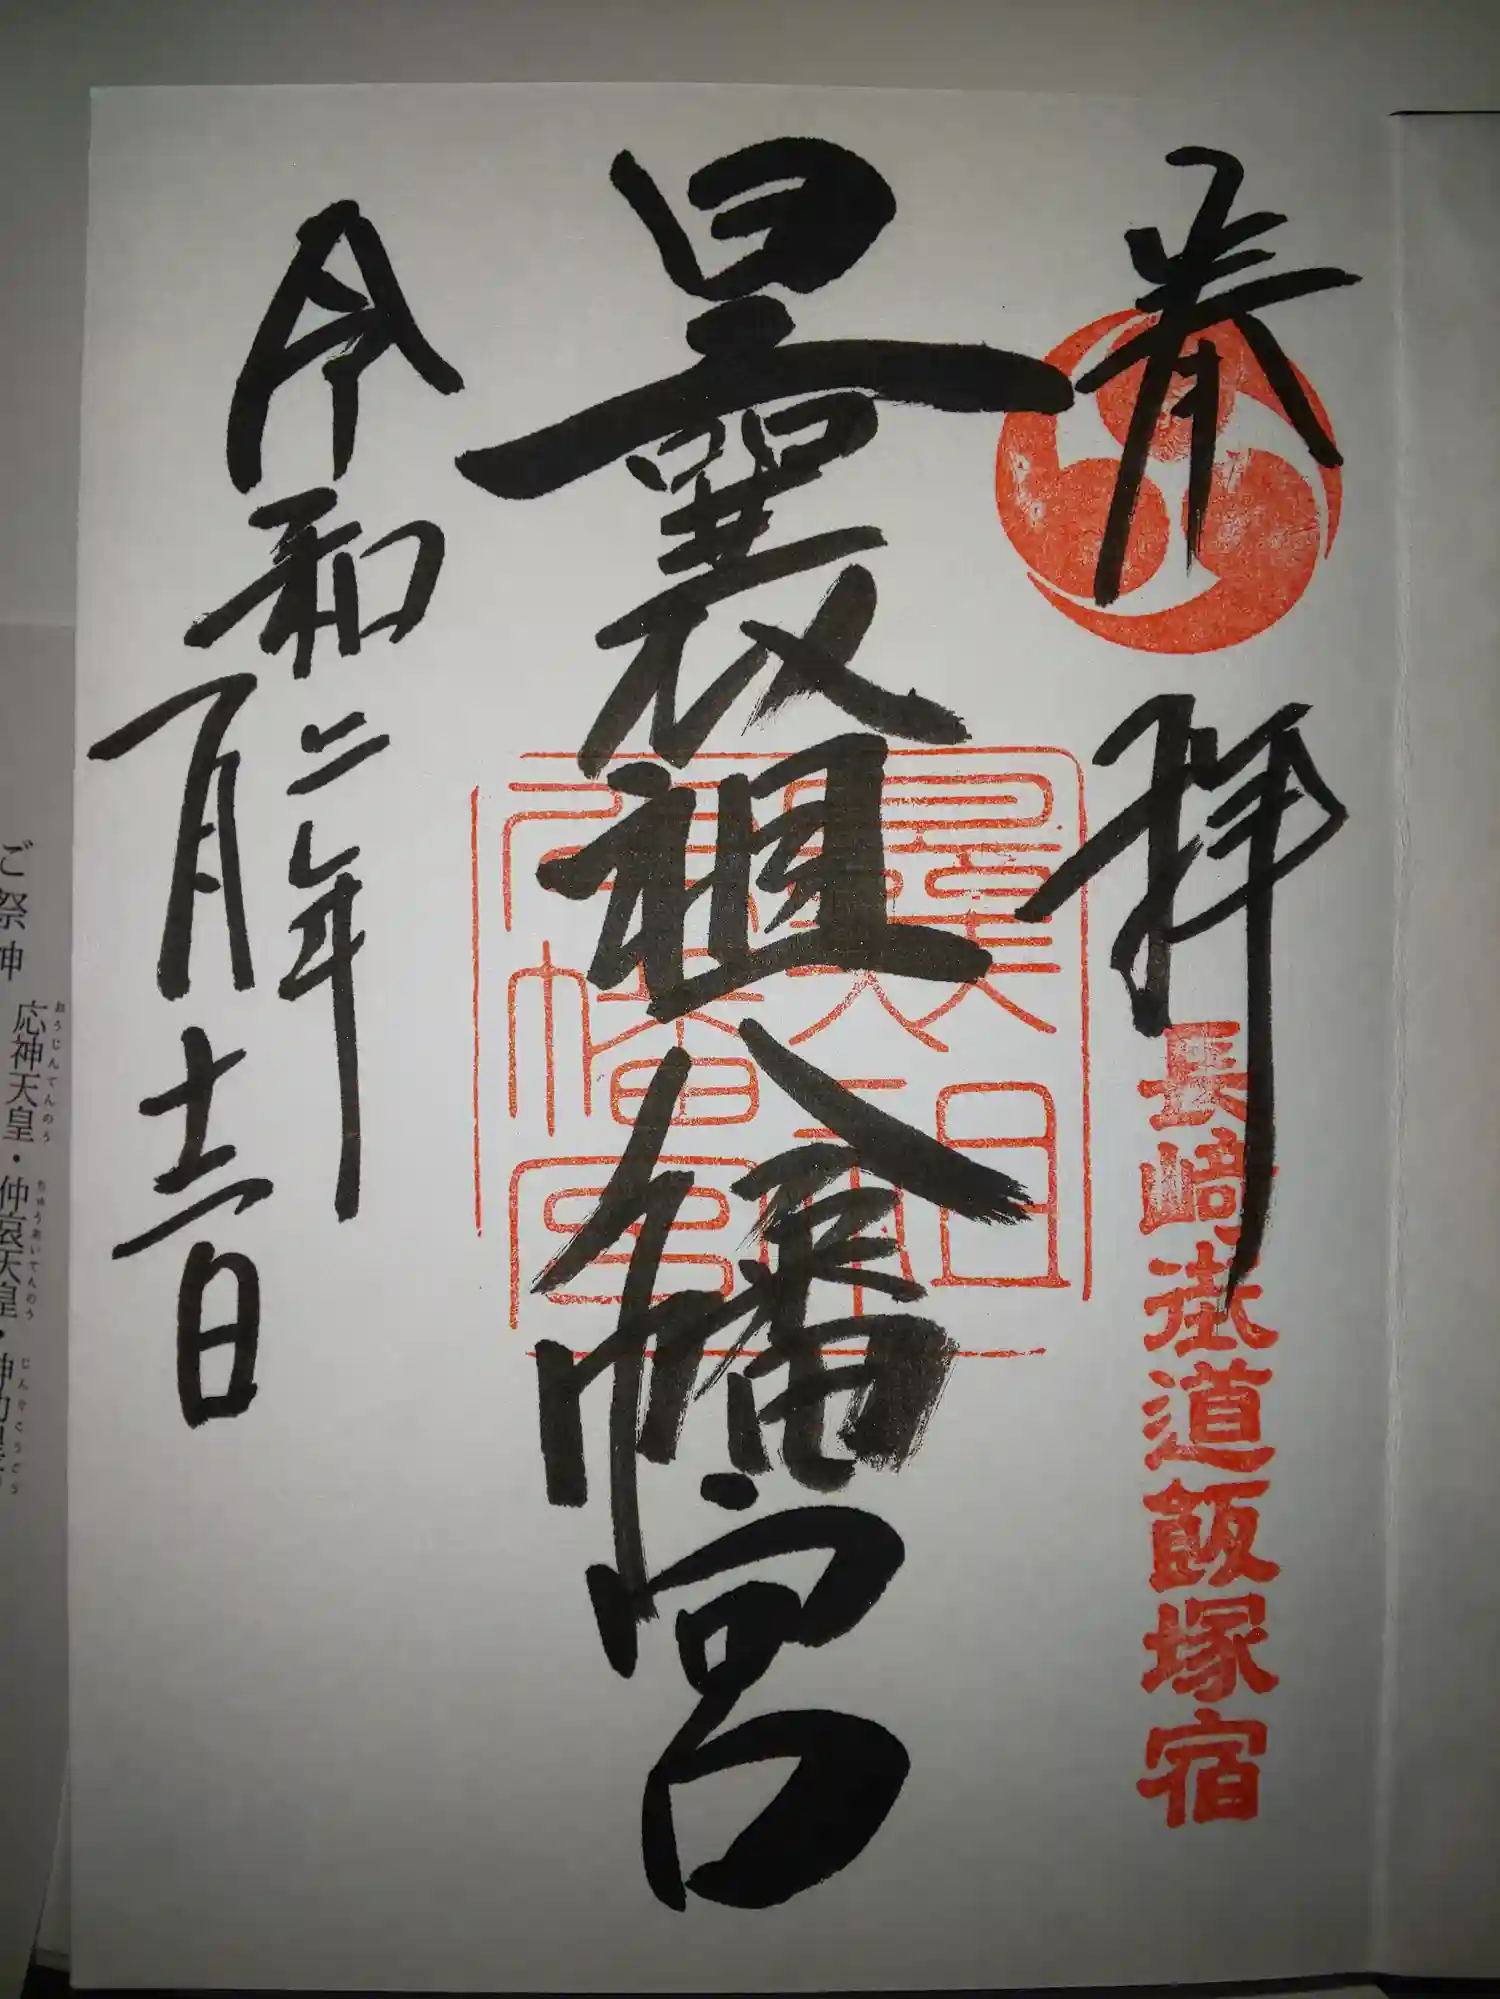 奉拝
長崎街道飯塚宿
曩祖八幡宮
令和二年
一月十二日
おうじんてんのう ちゅうあいてんのう じんぐうこうごう
ご祭神 応神天皇・仲哀天皇・神功皇